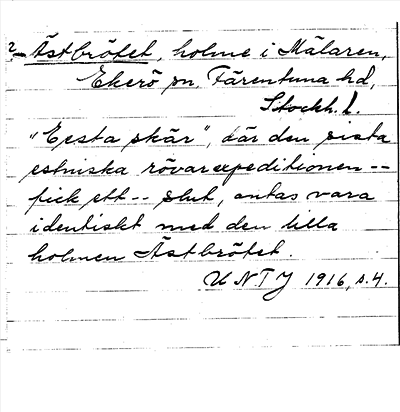 ?- Ästbrötet, holme i Mälaren,
Ekerö sn, Färentuna hd,
Stockh. l.
"Eesta skär", där den sista
estniska rövarexpeditionen --
fick ett -- slut, antas vara
identiskt med den lilla
holmen Ästbrötet.
UNTJ 1916, s. 4.